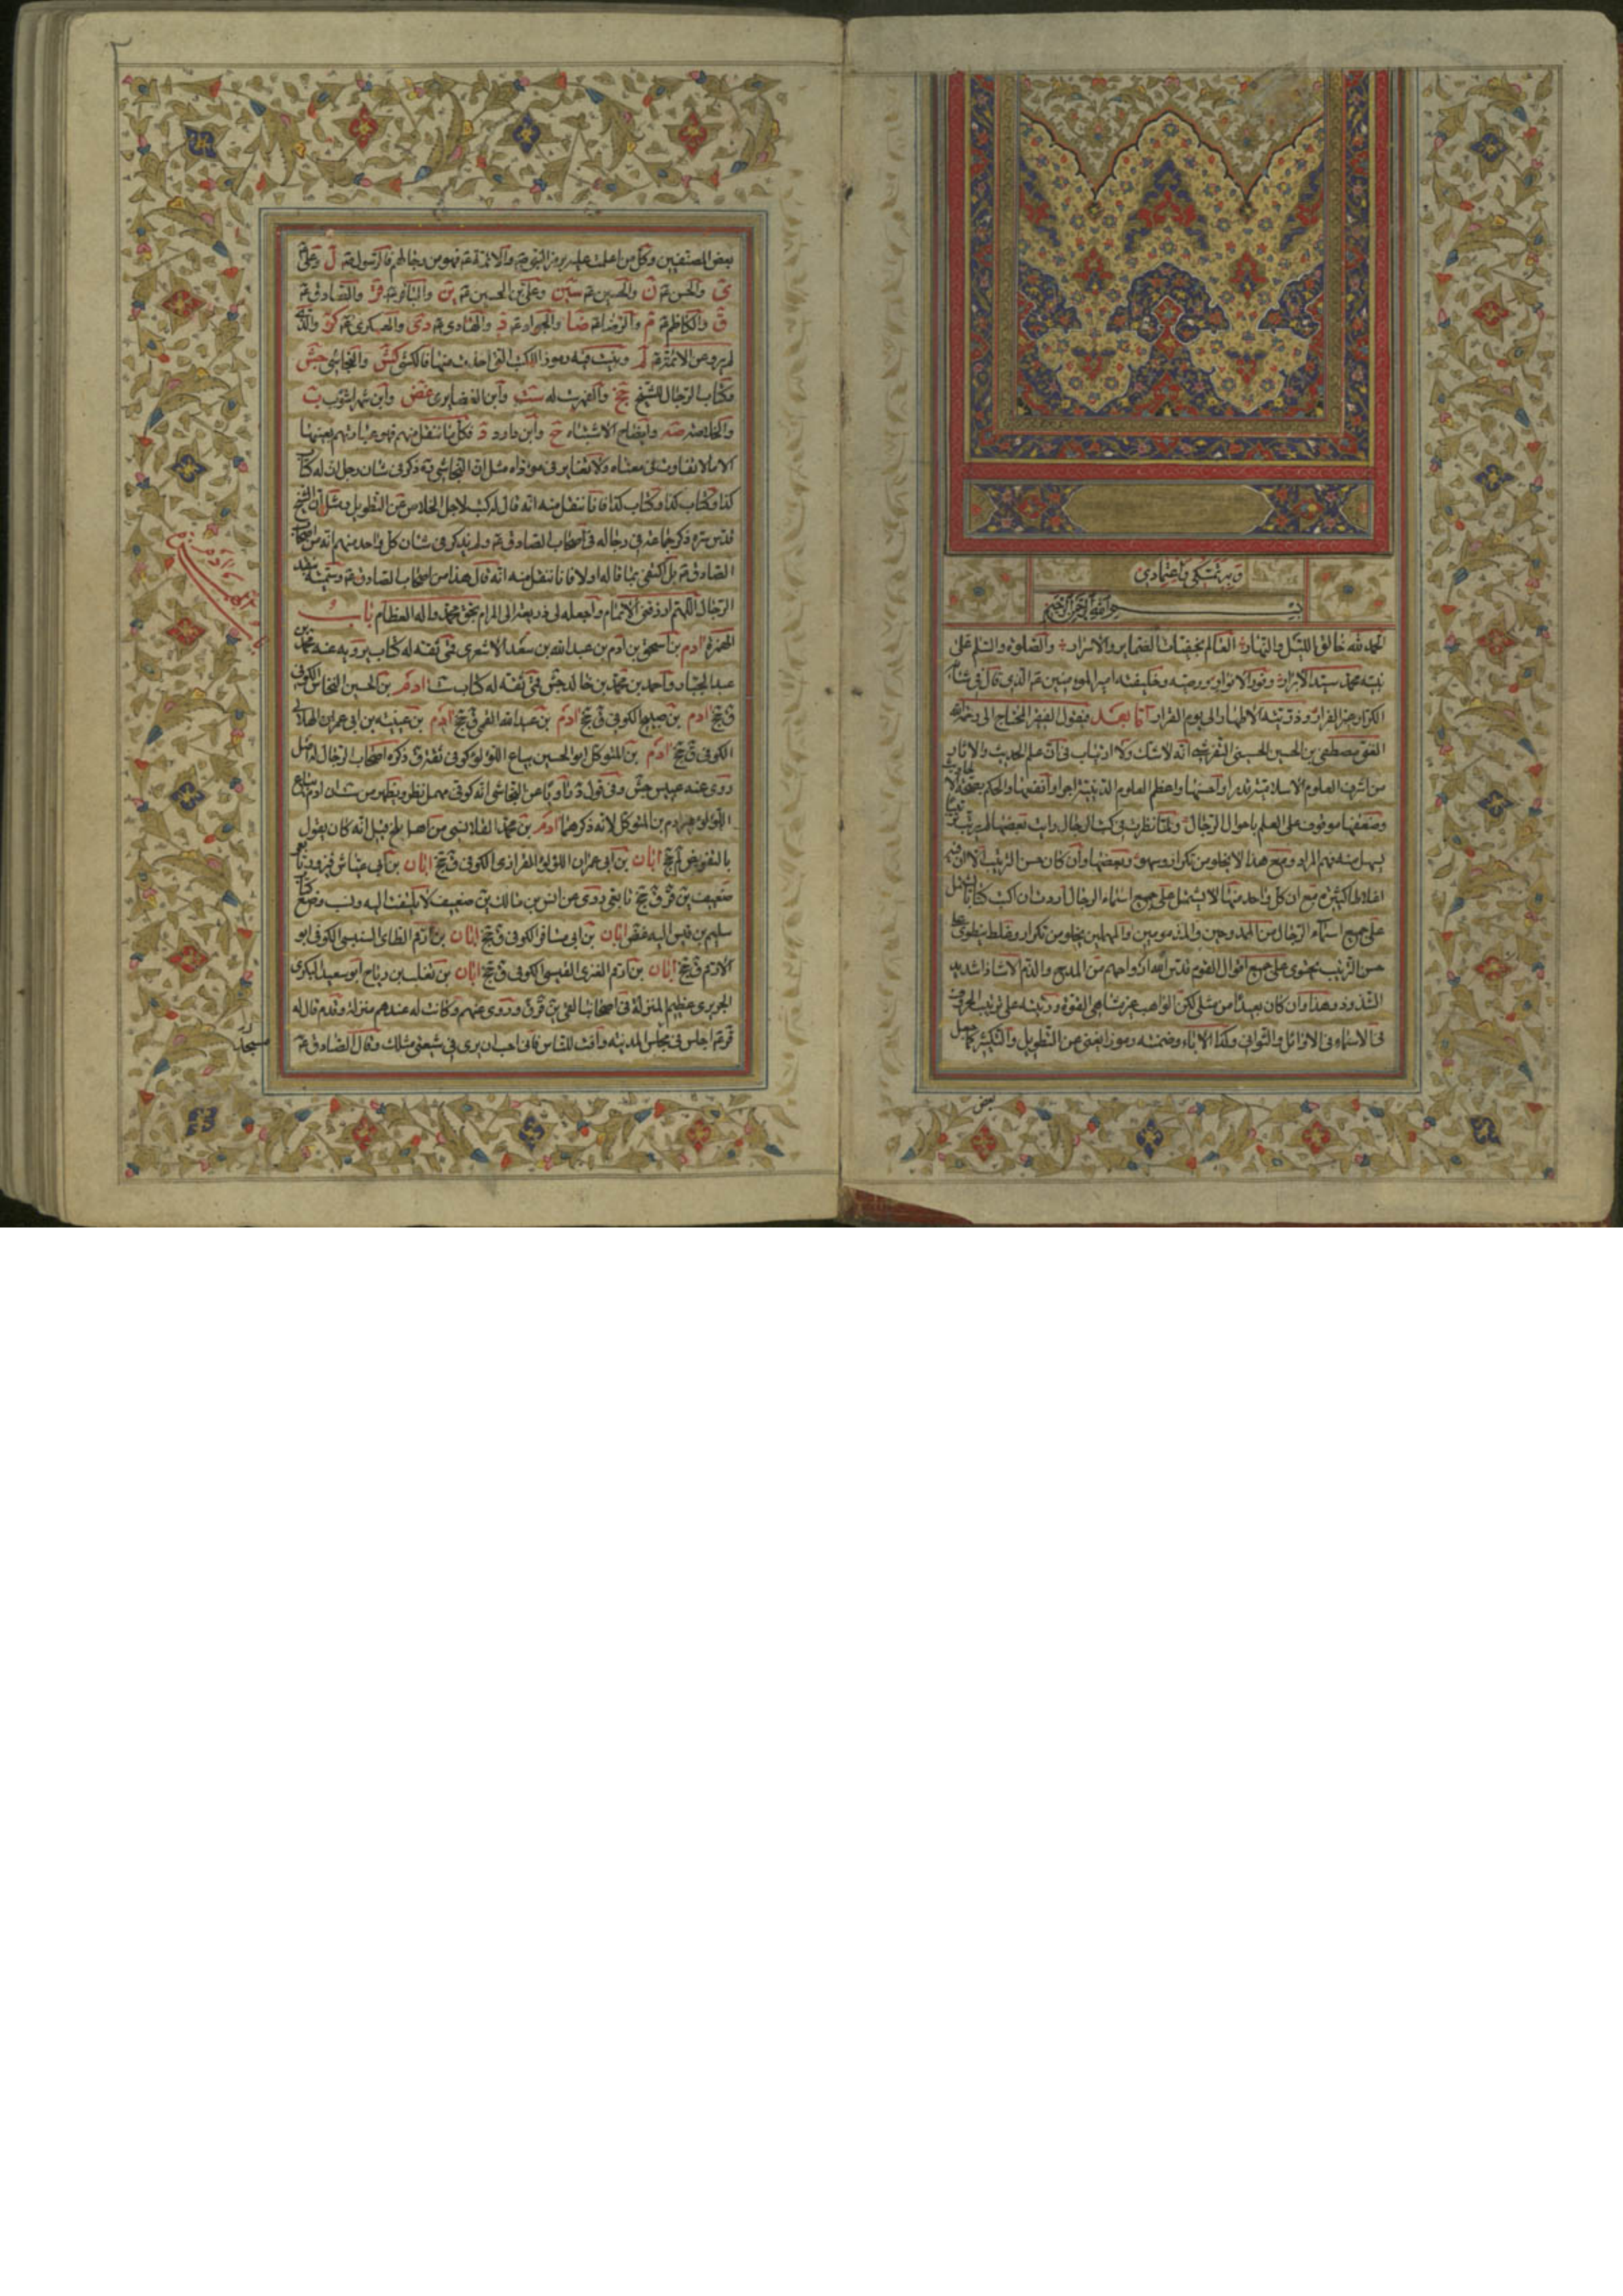 وبه تمسكي واعتمادي
بسم الله الرحمن الرحيم
الحمد لله خالق الليل والنهار العالم بخفيات الضماير والاسرار والصلوة والسلم على
نبيه محمد سيد الابرار ونور الانوار ووصيه وخليفته امير المومنين عم الذي قال في شانه
الكرار غير الفرار وذريته الاطهار الى يوم القرار اما بعد فيقول الفقير المحتاج الى رحمة الله
الغني مصطفى بن الحسين الحسيني التفرشي انه لا شك ولا ارتياب في ان علم الحديث والاثار
من اشرف العلوم الاسلامية قدرا واحسنها واعظم العلوم الدينية اجرا وانفعها والحكم بصحة الاحاديث
وضعفها موقوف على العلم باحوال الرجال ولما نظرت في كتب الرجال رايت بعضها لم يرتب ترتيبا
يسهل منه فهم المراد ومع هذا لا يخلو من تكرار وسهو وبعضها وان كان حسن الترتيب الا ان فيه
اغلاطا كثيرة مع ان كل واحد منها لا يشتمل على جميع اسماء الرجال اردت ان اكتب كتابا يشتمل
على جميع اسماء الرجال من الممدوحين والمذمومين والمهملين يخلو من تكرار وغلط ينطوي على
حسن الترتيب يحتوي على جميع اقوال القوم قدس الله ارواحهم من المدح والذم الا شاذا شديد
الشذوذ وهذا وان كان بعيدا من مثلي لكن الواهب غير متناهي القوة ورتبته على ترتيب الحروف
في الاسماء في الاوائل والثواني وكذا الاباء وضمنته رموزا تغني عن التطويل والتكثير كما جعل
بعض
بعض المصنفين وكل من اعلمت عليه برمز النبي ص والائمة عم فهو من رجالهم فالرسول ص ل وعلي عم
ي والحسن عم ن والحسين عم سين وعلي بن الحسين عم ين والباقر عم قر والصادق عم
ق والكاظم عم م والرضا عم ضا والجواد عم د والهادي عم دي والعسكري عم كر والذي
لم يرو عن الائمة عم لم وبينت فيه رموز الكتب التي اخذت منها فالكشي كش والنجاشي جش
وكتاب الرجال للشيخ جخ والفهرست له ست وابن الغضايري غض وابن شهراشوب ب
والخلاصة صه وايضاح الاشتباه ح وابن داود د فكل ما ننقل منهم فهو عباراتهم بعينها
الا ما لا تفاوت في معناه ولا تغاير في مؤداه مثل ان النجاشي ره ذكر في شان رجل ان له كتاب
كذا وكتاب كذا وكتاب كذا فانا ننقل منه انه قال له كتب لاجل الخلاص عن التطويل ومثل ان الشيخ
قدس سره ذكر جماعة في رجاله في اصحاب الصادق عم ولم يذكر في شان كل واحد منهم انه من اصحاب
الصادق عم بل اكتفى بما قاله اولا فانا ننقل منه انه قال هذا من اصحاب الصادق عم وسميته نقد
الرجال اللهم ارزقني الاتمام واجعله لي ذريعة الى المرام بحق محمد واله العظام باب
الهمزة ادم بن اسحق بن ادم بن عبد الله بن سعد الاشعري قمي ثقة له كتاب يرويه عنه محمد بن
عبد الجبار واحمد بن محمد بن خالد جش قمي ثقة له كتاب ست ادم بن الحسين النخاس الكوفي
ق جخ ادم بن صبيح الكوفي ق جخ ادم بن عبد الله القمي ق جخ ادم بن عيينة بن ابي عمران الهلالي
الكوفي ق جخ ادم بن المتوكل ابو الحسين بياع اللؤلؤ كوفي ثقة ق ذكره اصحاب الرجال له اصل
روى عنه عبيس جش وفي قول د ناويا عن النجاشي انه كوفي مهمل نظر ويظهر من ست ان ادم بياع
اللؤلؤ غير ادم بن المتوكل لانه ذكرهما ادم بن محمد القلانسي من اهل بلخ قيل انه كان يقول
بالتفويض لم جخ ابان بن ابي عمران اللؤلؤ الفزاري الكوفي ق جخ ابان بن ابي عياش فيروز تابعي
ضعيف ين قر ق جخ تابعي روى عن انس بن مالك ين ضعيف لا يلتفت اليه وينسب وضع كتاب
سليم بن قيس اليه غض ابان بن ابي مسافر الكوفي ق جخ ابان بن ارقم الطائي السنبسي الكوفي ابو
الارقم ق جخ ابان بن ارقم العنزي القيسي الكوفي ق جخ ابان بن تغلب بن رباح ابو سعيد البكري
الجريري عظيم المنزلة في اصحابنا لقي ين قر ق وروى عنهم وكانت له عندهم منزلة وقدم قال له
قر عم اجلس في مجلس المدينة وافت للناس فاني احب ان يرى في شيعتي مثلك وقال الصادق عم